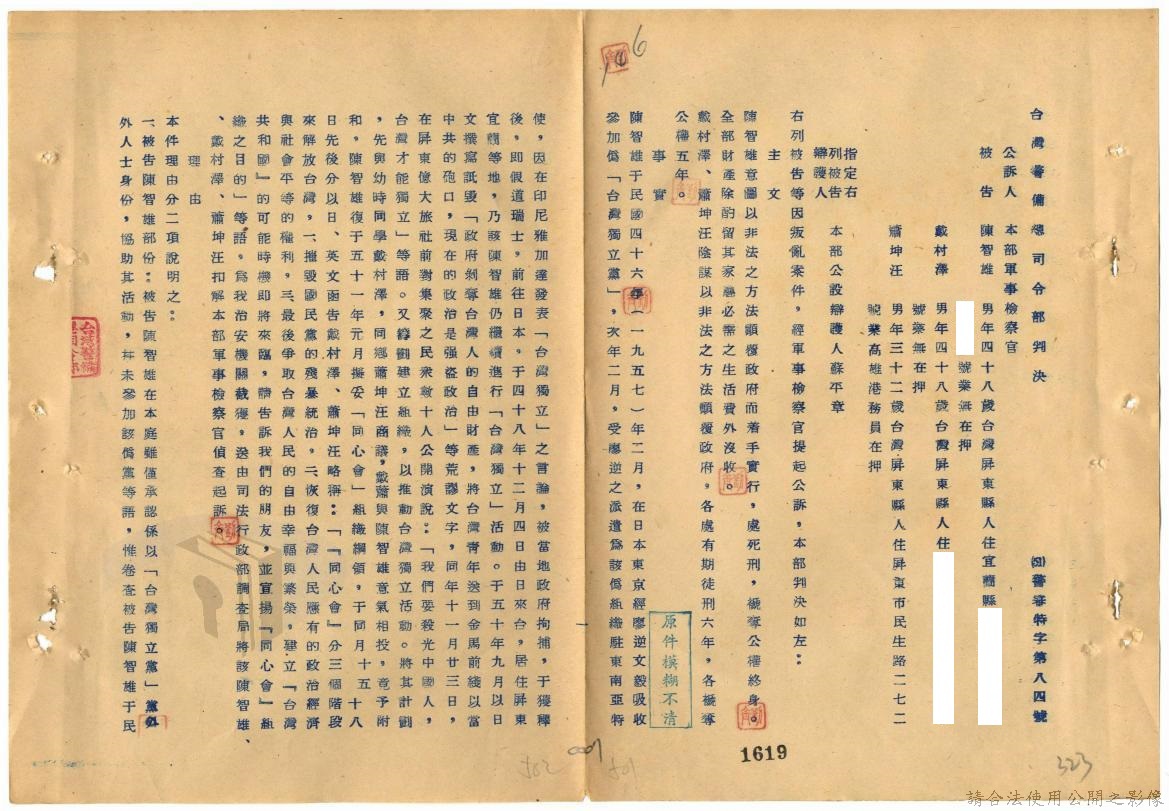 台灣警備總司令部判決
警審特字第八四號
公訴人 本部軍事檢察官
被告 陳智雄 男年四十八歲台灣屏東縣人住宜蘭縣
號業無在押
戴村澤 男年四十八歲台灣屏東縣人住
號業無在押
蕭坤汪 男年三十二歲台灣屏東縣人住屏東市民生路二七二
號業高雄港務員在押
指定右
列被告
辯護人 本部公設辯護人蘇平章
右列被告等因叛亂案件,經軍事檢察官提起公訴,本部判決如左:
主文
陳智雄意圖以非法之方法顛覆政府而着手實行,處死刑,褫奪公權終身。
全部財產除酌留其家屬必需之生活費外沒收。
戴村澤、蕭坤汪陰謀以非法之方法顛覆政府,各處有期徒刑六年,各褫奪
公權五年。
事實
陳智雄于民國四十六年(一九五七)年二月,在日本東京經廖逆文毅吸收
參加偽「台灣獨立黨」,次年二月,受廖逆之派遣為該偽組織駐東南亞特
使,因在印尼雅加達發表「台灣獨立」之言論,被當地政府拘捕,于獲釋
後,即假道瑞士,前往日本。于四十八年十二月四日由日來台,居住屏東
宜蘭等地,乃該陳智雄仍繼續進行「台灣獨立」活動。于五十年九月以日
文撰寫詆毀「政府剝奪台灣人的自由財產,將台灣青年送到金馬前綫以當
中共的砲口,現在的政治是强盜政治」等荒謬文字,同年十一月廿三日,
在屏東億大旅社前對集聚之民衆數十人公開演說:「我們要殺光中國人,
台灣才能獨立」等語。又籌劃建立組織,以推動台灣獨立活動。將其計劃
,先與幼時同學戴村澤,同鄉蕭坤汪商議,戴蕭與陳智雄意氣相投,竟予附
和,陳智雄復于五十一年元月擬妥「同心會」組織綱領,于同月十五、十八
日先後分以日、英文函告戴村澤、蕭坤汪略稱:「『同心會』分三個階段
來解放台灣,一、摧毀國民黨的殘暴統治,二、恢復台灣人民應有的政治經濟
與社會平等的權利,三、最後爭取台灣人民的自由幸福與繁榮,建立『台灣
共和國』的可能時機即將來臨,請告訴我們的朋友,並宣揚『同心會』組
織之目的」等語。為我治安機關截獲,送由司法行政部調查局將該陳智雄、
、戴村澤、蕭坤汪扣解本部軍事檢察官偵查起訴。
理由
本件理由分二項說明之:
一、被告陳智雄部份:被告陳智雄在本庭雖僅承認係以「台灣獨立黨」黨外
外人士身份,協助其活動,并未參加該偽黨等語,惟卷查被告陳智雄于民
原件模糊不清
1619
323
146
請合法使用公開之影像